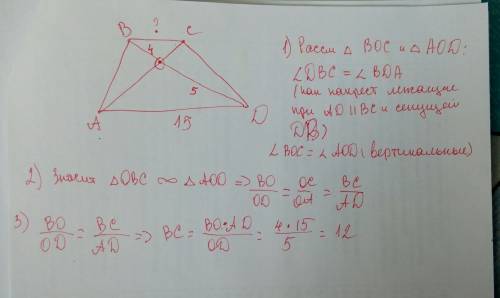 ?
B
C
4
5
A
15
D
1) Рассм △ BOC и △ AOD:
∠DBC = ∠BDA
(как накрест лежащие
при AD || BC и секущей
DB)
∠BOC = ∠AOD (вертикальные)
2) Значит △OBC ∞ △AOD => BO/OD = OC/OA = BC/AD
3) BO/OD = BC/AD => BC = BO·AD/OD = 4·15/5 = 12